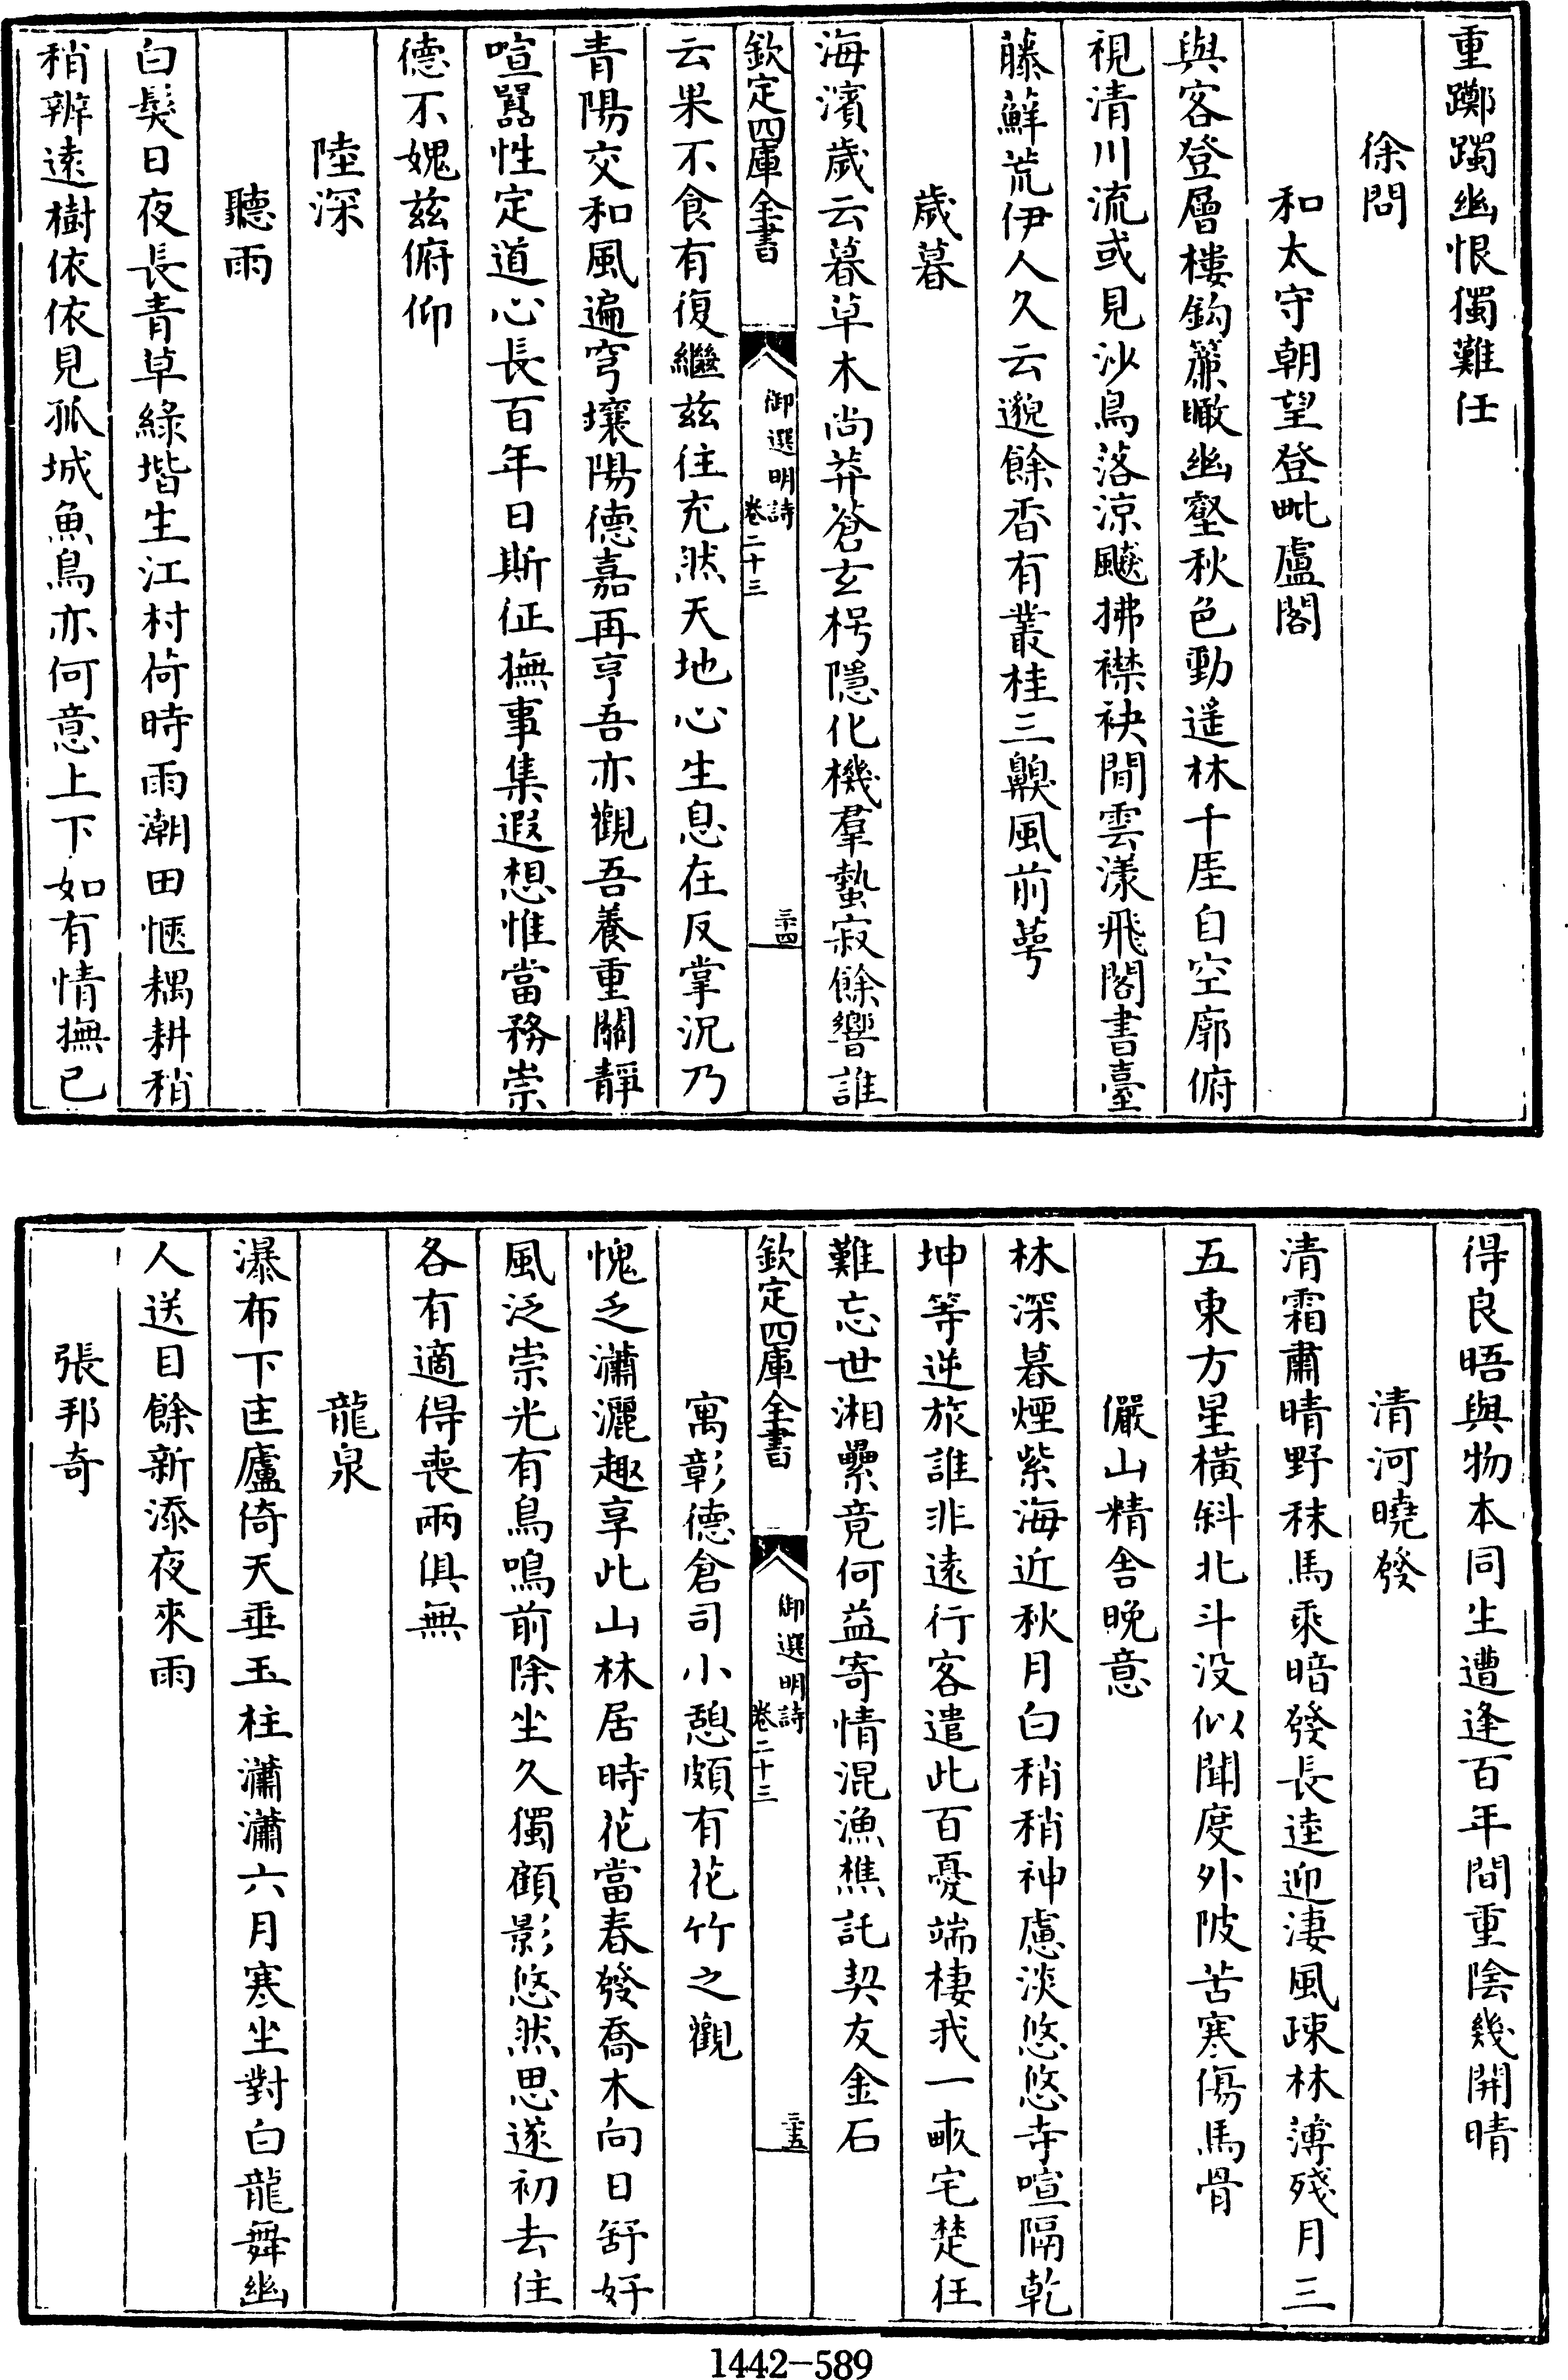 重躑躅幽恨獨難任
徐問
和太守朝望登毗盧閣
與客登層樓鈎簾瞰幽壑秋色動遥林千厓自空廓俯
視清川流或見沙鳥落涼飈拂襟袂閒雲漾飛閣書臺
藤蘚荒伊人久云邈餘香有叢桂三齅風前萼
歲暮
海濱歲云暮草木尚莽蒼玄枵隱化機羣蟄寂餘響誰
欽定四庫全書
御選明詩
卷二十三
三十四
云果不食有復繼茲往充然天地心生息在反掌況乃
青陽交和風遍穹壤陽德嘉再亨吾亦觀吾養重關靜
喧囂性定道心長百年日斯征撫事集遐想惟當務崇
德不媿茲俯仰
陸深
聽雨
白髮日夜長青草綠堦生江村荷時雨潮田愜耦耕稍
稍辨遠樹依依見孤城魚鳥亦何意上下如有情撫己
得良晤與物本同生遭逢百年間重陰幾開晴
清河曉發
清霜肅晴野秣馬乘暗發長逵迎淒風疎林薄殘月三
五東方星橫斜北斗没似聞度外陂苦寒傷馬骨
儼山精舍晚意
林深暮煙紫海近秋月白稍稍神慮淡悠悠寺喧隔乾
坤等逆旅誰非遠行客遣此百憂端棲我一畝宅楚狂
難忘世湘纍竟何益寄情混漁樵託契友金石
欽定四庫全書
御選明詩
卷二十三
三十五
寓彰德倉司小憩頗有花竹之觀
愧乏瀟灑趣享此山林居時花當春發喬木向日舒好
風泛崇光有鳥鳴前除坐久獨顧影悠然思遂初去住
各有適得喪兩俱無
龍泉
瀑布下匡廬倚天垂玉柱瀟瀟六月寒坐對白龍舞幽
人送目餘新添夜來雨
張邦奇
1442-589